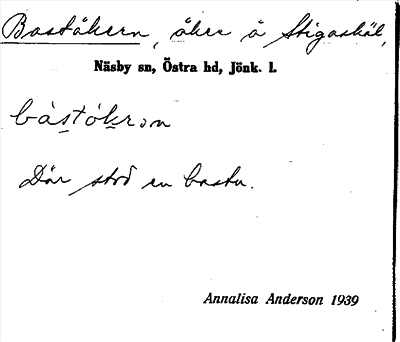 Baståkern, åker å Stigaskäl,
Näsby sn, Östra hd, Jönk. l.
bàstókrɔn
Där stod en bastu.
Annalisa Anderson 1939